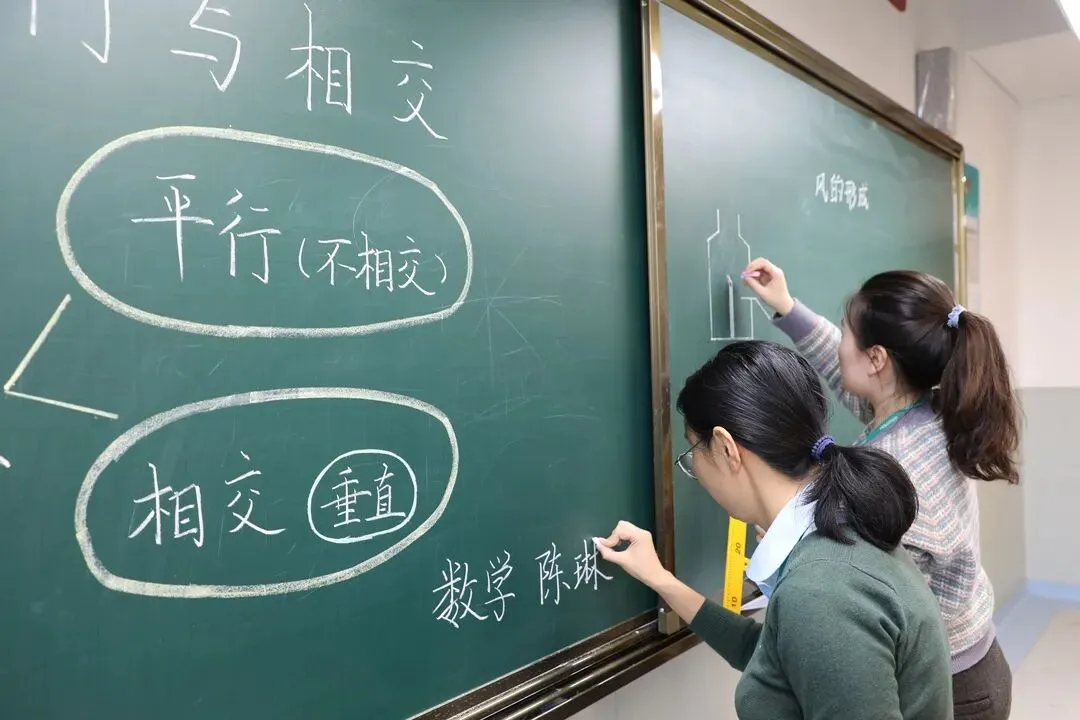 与相交
平行(不相交)
相交 垂直
数学 陈琳
风的形成
20
10